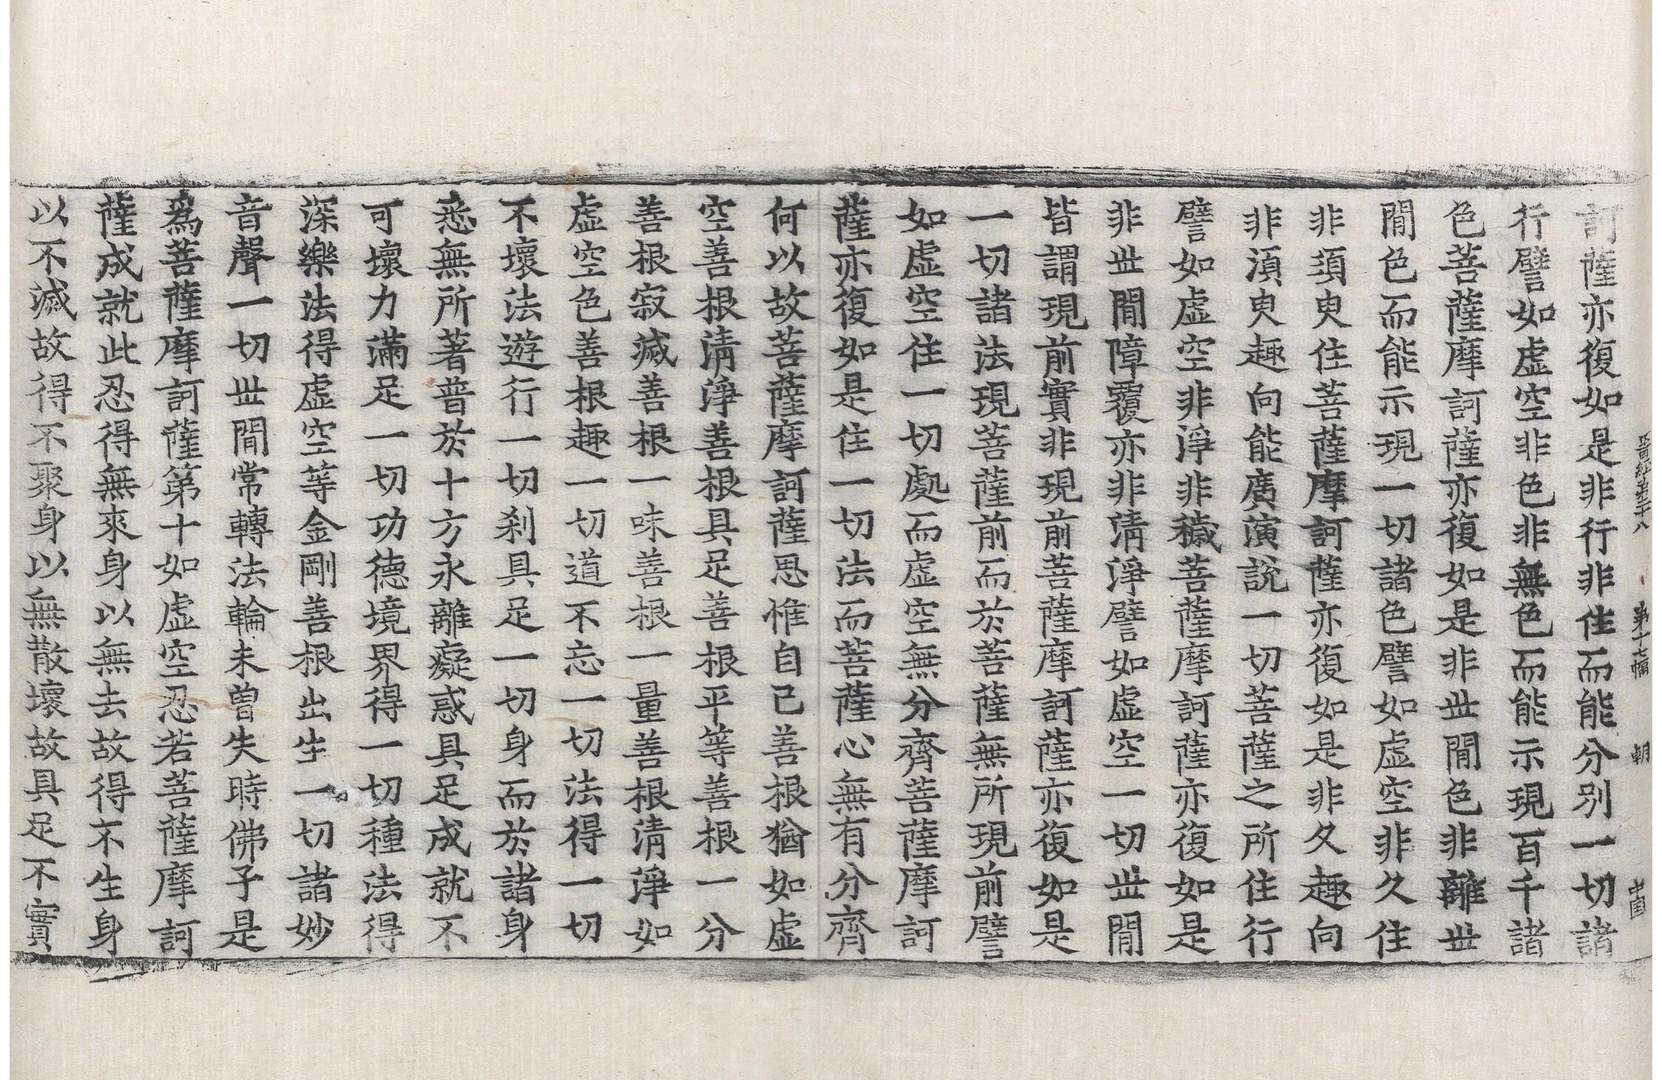 晉經卷二十八 第十七幅 朝 中固
訶薩亦復如是非行非住而能分別一切諸
行譬如虛空非色非無色而能示現百千諸
色菩薩摩訶薩亦復如是非世間色非離世
間色而能示現一切諸色譬如虛空非久住
非須臾住菩薩摩訶薩亦復如是非久趣向
非湏臾趣向能廣演說一切菩薩之所住行
譬如虛空非淨非穢菩薩摩訶薩亦復如是
非世間障覆亦非清淨譬如虛空一切世間
皆謂現前實非現前菩薩摩訶薩亦復如是
一切諸法現菩薩前而於菩薩無所現前譬
如虛空住一切處而虛空無分齊菩薩摩訶
薩亦復如是住一切法而菩薩心無有分齊
何以故菩薩摩訶薩思惟自己善根猶如虛
空善根清淨善根具足善根平等善根一分
善根寂滅善根一味善根一量善根清淨如
虛空色善根趣一切道不忘一切法得一切
不壞法遊行一切刹具足一切身而於諸身
悉無所著普於十方永離癡惑具足成就不
可壞力滿足一切功德境界得一切種法得
深樂法得虛空等金剛善根出生一切諸妙
音聲一切世間常轉法輪未曾失時佛子是
爲菩薩摩訶薩第十如虛空忍若菩薩摩訶
薩成就此忍得無來身以無去故得不生身
以不滅故得不聚身以無散壞故具足不實